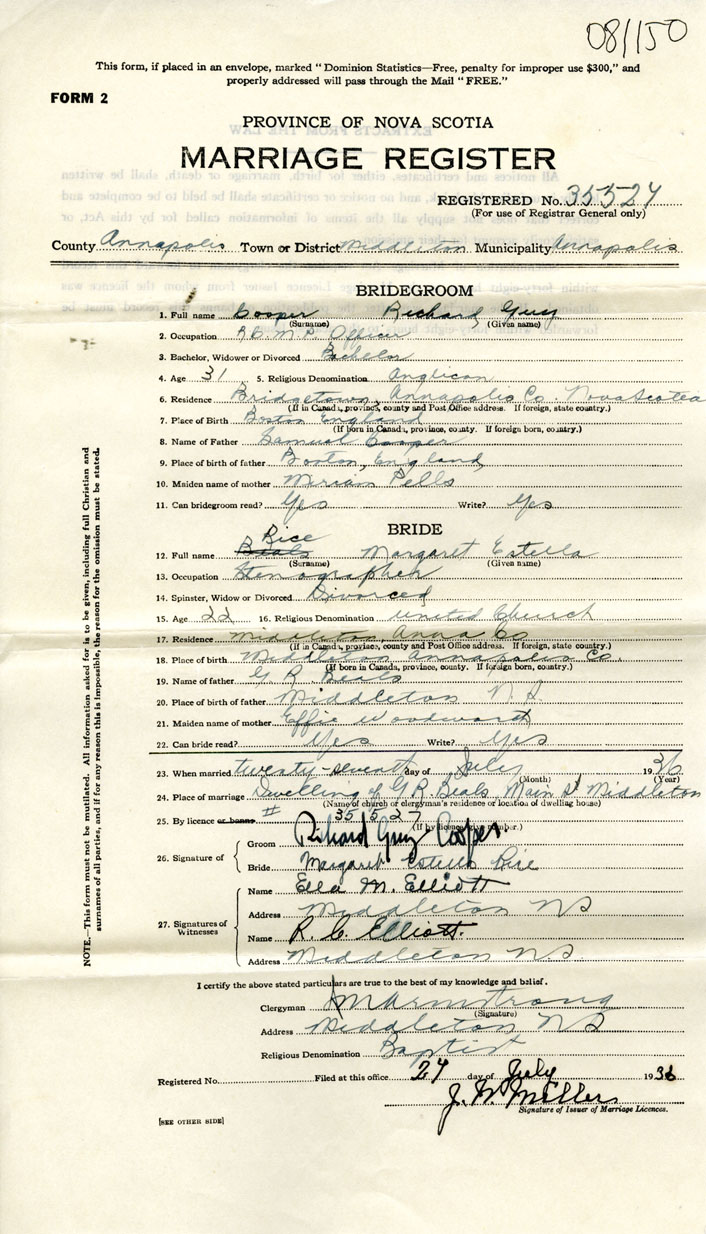 08/150
This form, if placed in an envelope, marked "Dominion Statistics—Free, penalty for improper use $300," and
properly addressed will pass through the Mail "FREE."
FORM 2
PROVINCE OF NOVA SCOTIA
MARRIAGE REGISTER
REGISTERED No. 35527
(For use of Registrar General only)
County Annapolis Town or District Middleton Municipality Annapolis
BRIDEGROOM
1. Full name Cooper Richard Guy
(Surname) (Given name)
2. Occupation R.C.M.P. Officer
3. Bachelor, Widower or Divorced Bachelor
4. Age 31 5. Religious Denomination Anglican
6. Residence Bridgetown, Annapolis Co. Nova Scotia
(If in Canada, province, county and Post Office address. If foreign, state country.)
7. Place of Birth Boston England
(If born in Canada, province, county. If foreign born, country.)
8. Name of Father Samuel Cooper
9. Place of birth of father Boston, England
10. Maiden name of mother Miriam Pells
11. Can bridegroom read? Yes Write? Yes
BRIDE
Rice
12. Full name Beals Margaret Estella
(Surname) (Given name)
13. Occupation Stenographer
14. Spinster, Widow or Divorced Divorced
15. Age 22 16. Religious Denomination United Church
17. Residence Middleton, Anna Co
(If in Canada, province, county and Post Office address. If foreign, state country.)
18. Place of birth Middleton Annapolis Co.
(If born in Canada, province, county. If foreign born, country.)
19. Name of father G R Beals
20. Place of birth of father Middleton N.S
21. Maiden name of mother Effie Woodworth
22. Can bride read? Yes Write? Yes
23. When married twenty-seventh day of July 1936
(Month) (Year)
24. Place of marriage Dwelling of G R Beals, Main St Middleton
(Name of church of clergyman's residence or location of dwelling house)
25. By licence or banns # 35527
(If by licence give number.)
26. Signature of
Groom Richard Guy Cooper.
Bride Margaret Estella Rice
27. Signatures of Witnesses
Name Ella M. Elliott
Address Middleton NS
Name R. C. Elliott.
Address Middleton N.S
I certify the above stated particulars are true to the best of my knowledge and belief.
Clergyman Armstrong
(Signature)
Address Middleton NS
Religious Denomination Baptist
Registered No. Filed at this office 27 day of July 1936
J. W. Millers
Signature of Issuer of Marriage Licences.
[SEE OTHER SIDE]
NOTE.—This form must not be mutilated. All information asked for is to be given, including full Christian and
surnames of all parties, and if for any reason this is impossible, the reason for the omission must be stated.